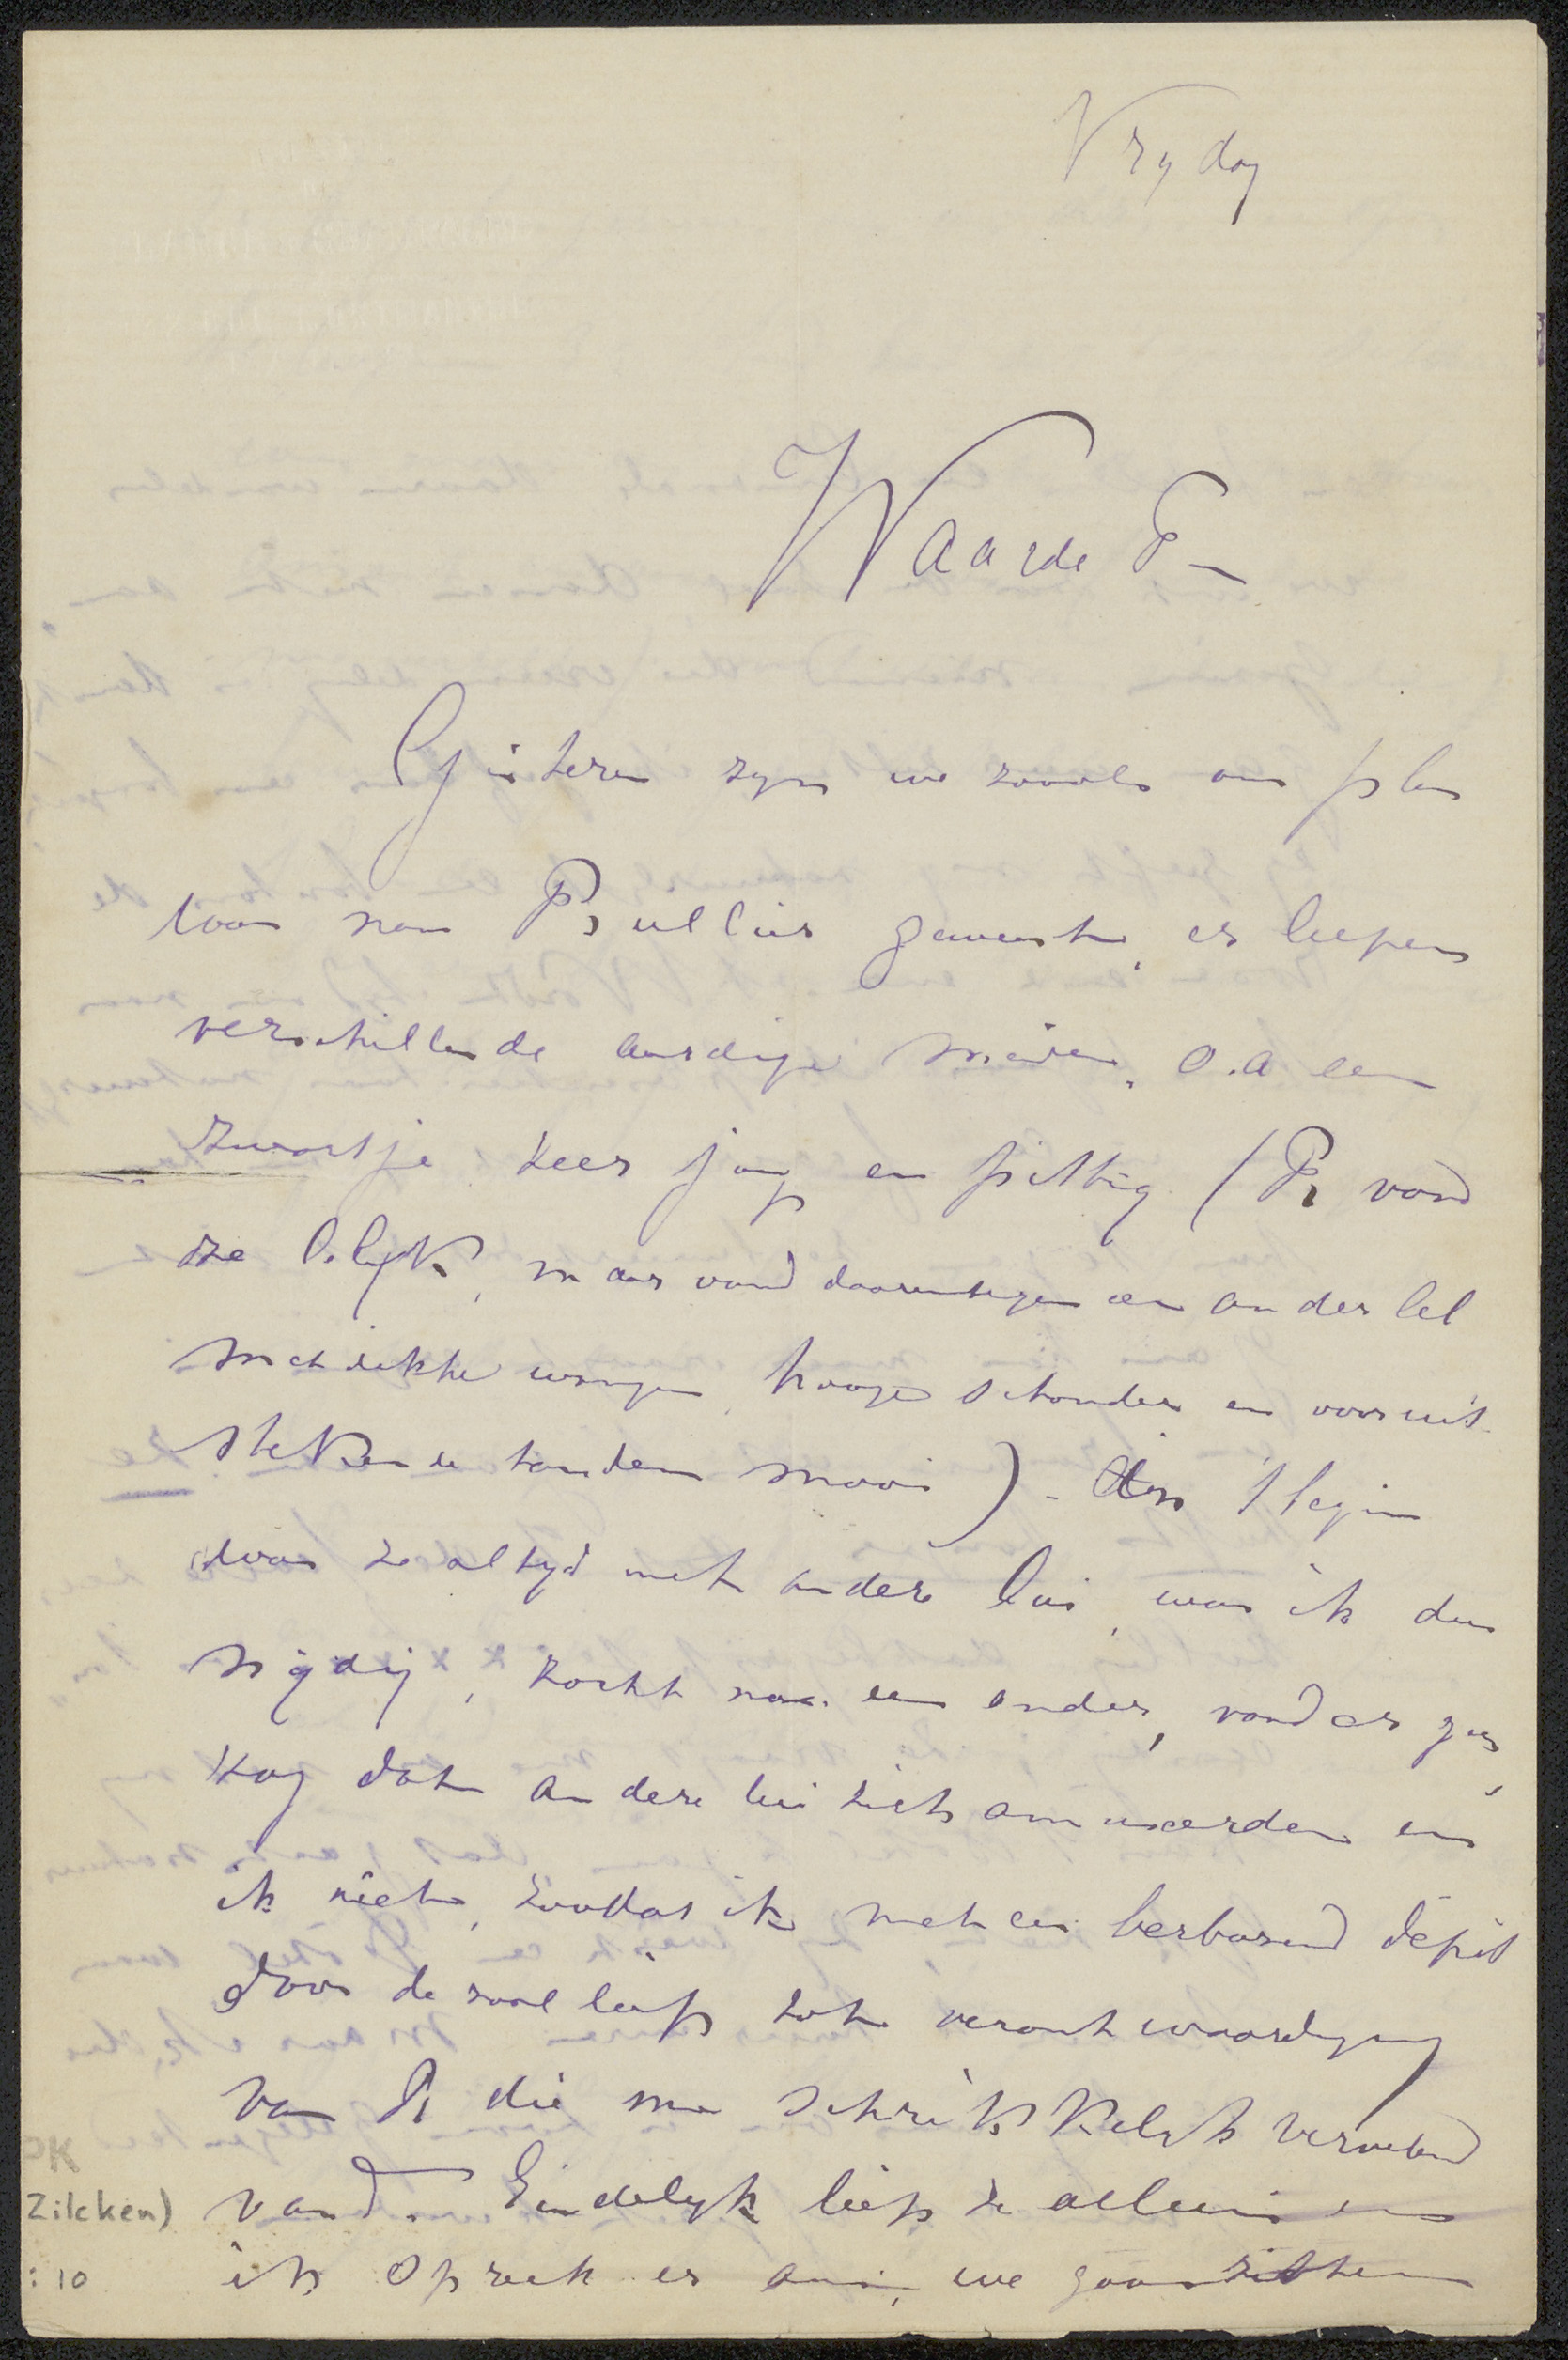 Vrydag
Waarde P—
Gisteren zyn we zooals ons plan
was naar Bullier geweest, er liepen
verschillende aardige meiden, o.a een
zwartje zeer jong en pittig (P. vond
ze lelyk, maar vond daarentegen een ander lel
met dikke wangen, hooge schouders en vooruit
stekende tanden mooi). In 't begin
was ze altyd met andere lui, was ik dus
nijdig, zocht naar een ander, vond er geen,
zag dat andere lui zich amuseerden en
ik niet, zoodat ik met een verbazend dépit
door de zaal liep tot verontwaardiging
van P. die me schrikkelyk vervelend
vond. Eindelyk liep ze alleen en
ik spreek er aan, we gaan zitten
OK
Zilcken)
:10